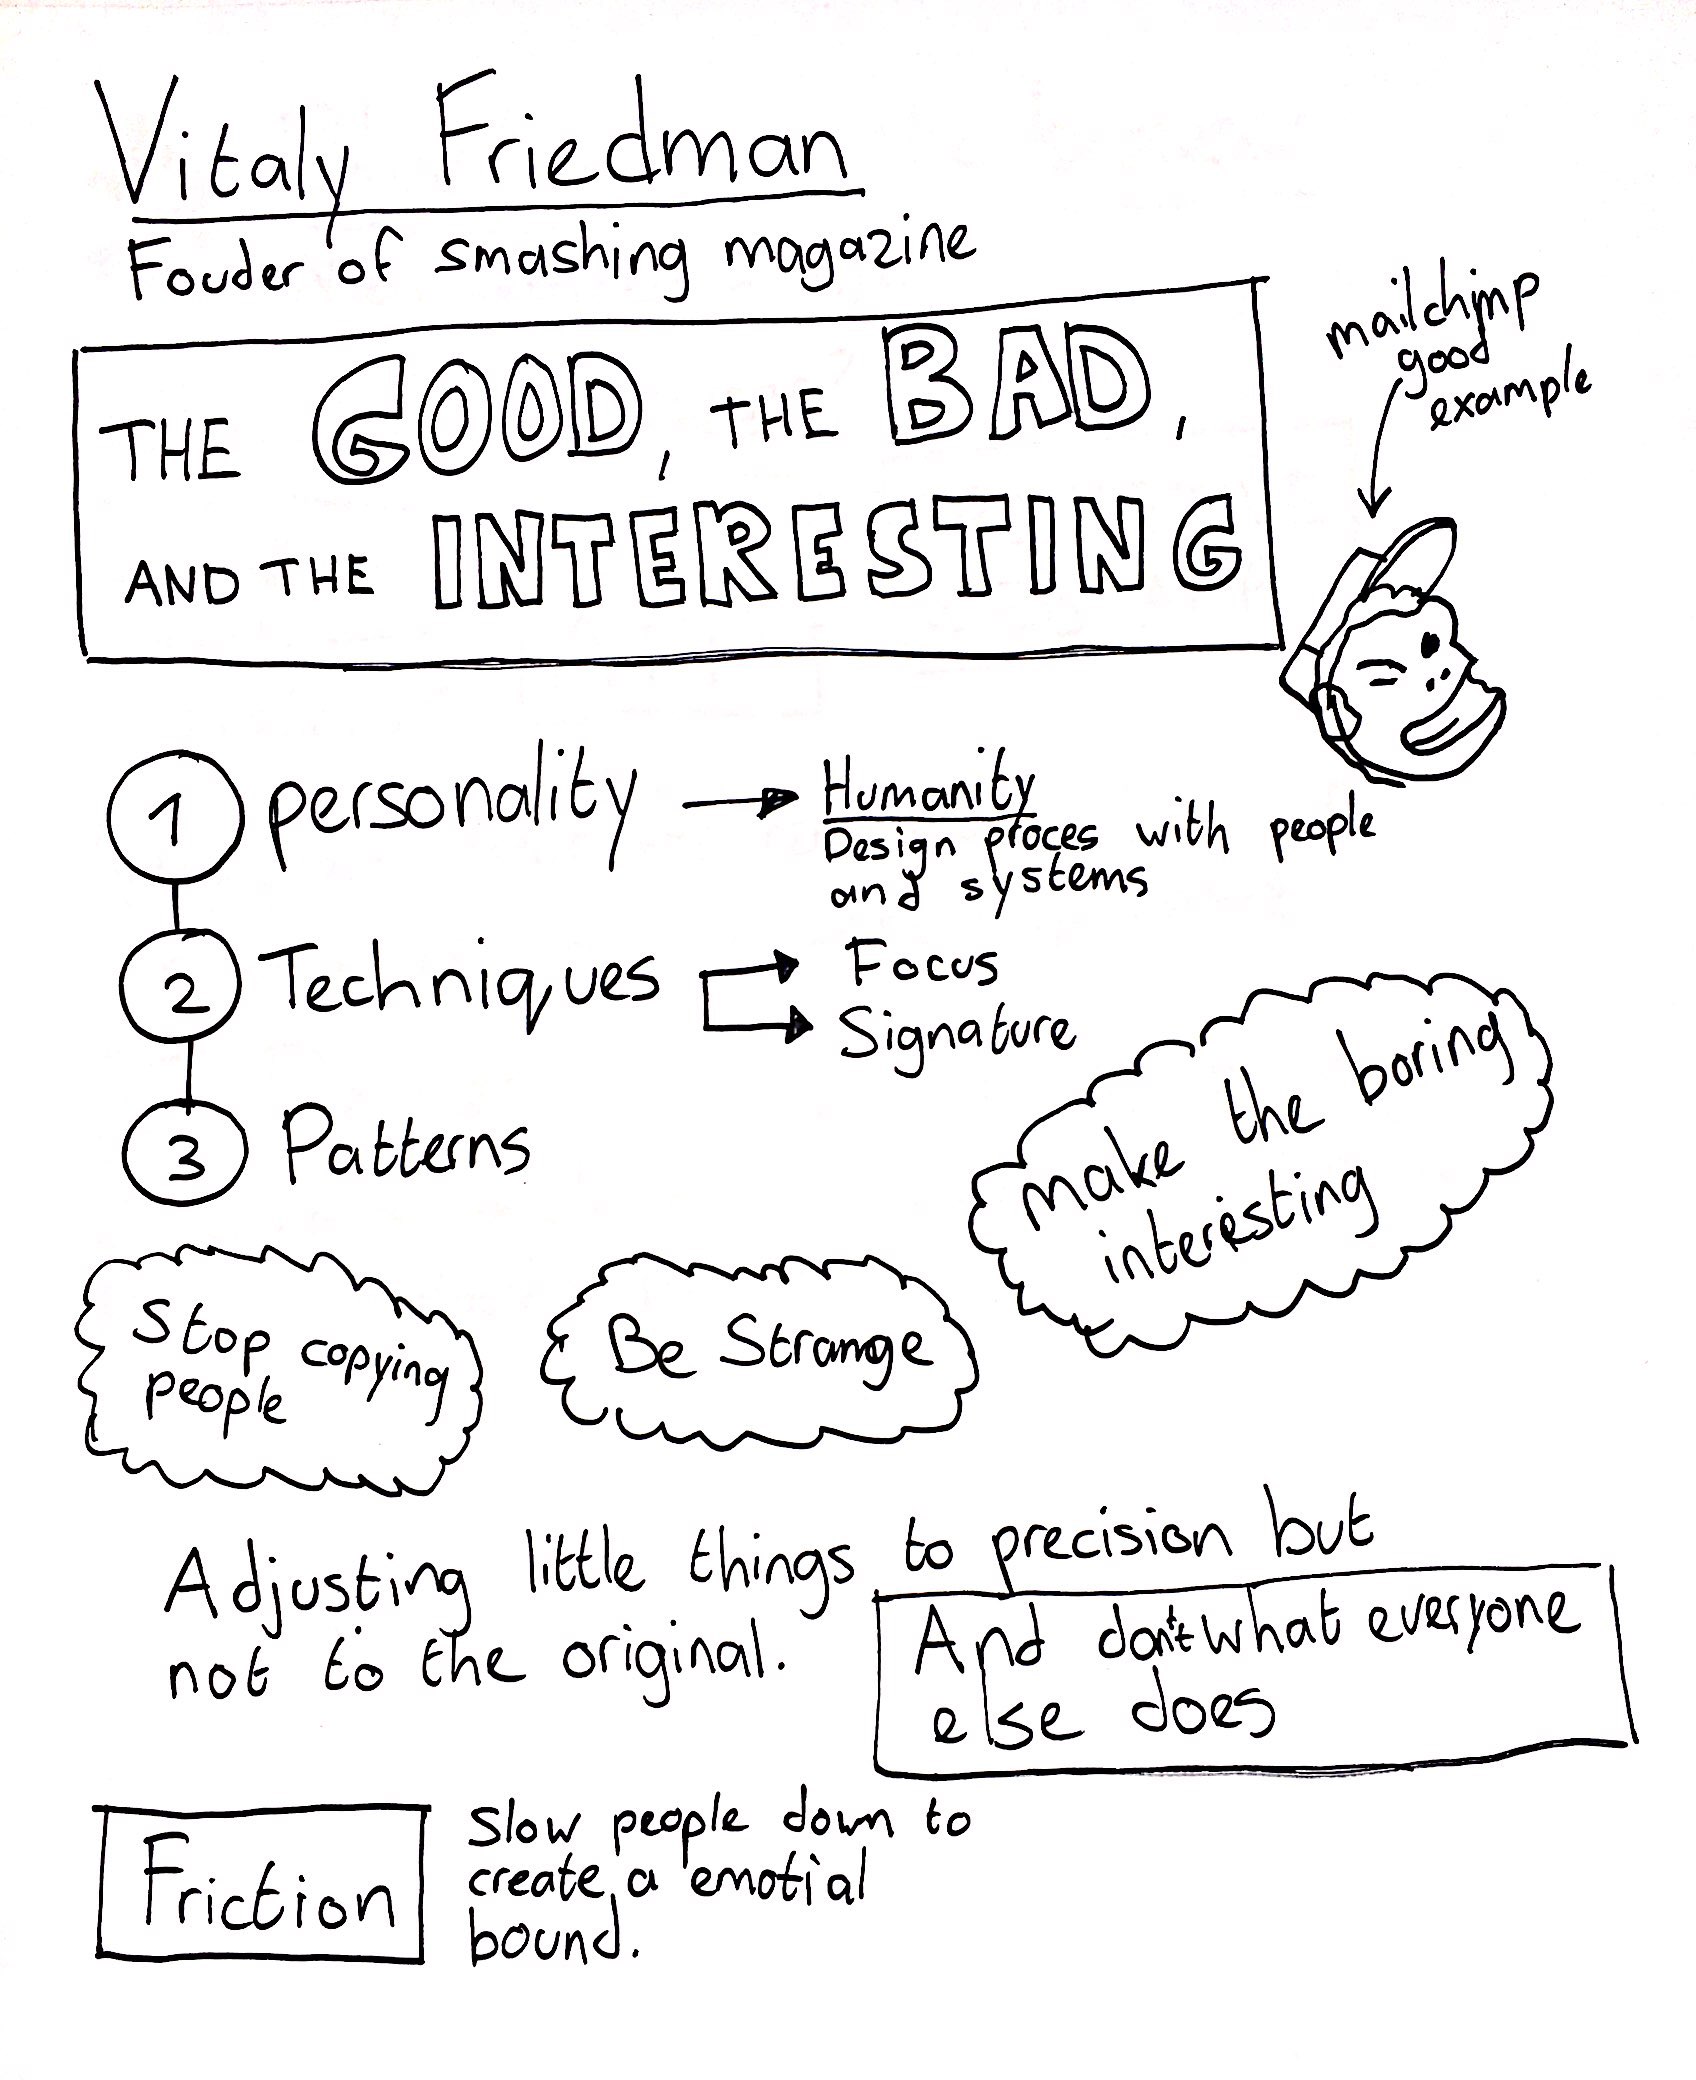 Vitaly Friedman
Fouder of smashing magazine
THE GOOD, THE BAD,
AND THE INTERESTING
mailchimp
good
example
1 personality → Humanity
Design proces with people
and systems
2 Techniques → Focus
→ Signature
3 Patterns
make the boring
interesting
Stop copying
people
Be Strange
Adjusting little things to precision but
not to the original.
And don't what everyone
else does
Friction
Slow people down to
create a emotial
bound.